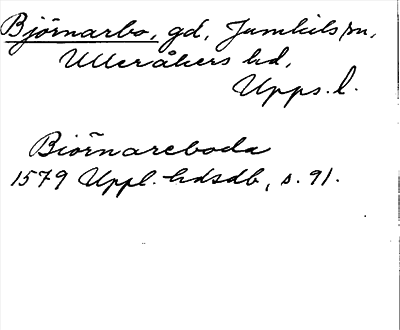 Björnarbo, gd, Jumkils sn,
Ulleråkers hd,
Upps. l.
Biörnareboda
1579 Uppl. hdsdb, s. 91.